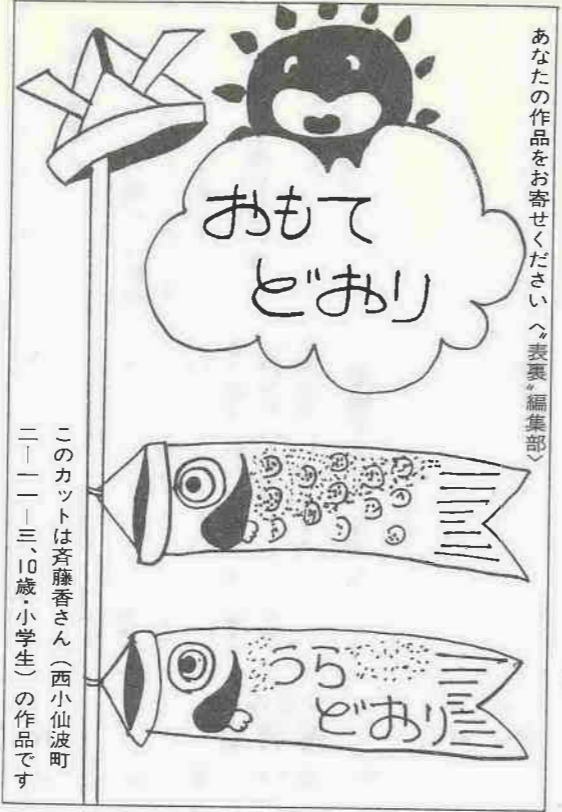 あなたの作品をお寄せください〈〝表裏〟編集部〉
おもて
どおり
うら
どおり
このカットは斉藤香さん（西小仙波町
二―一一―三、10歳・小学生）の作品です